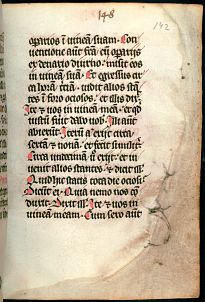 148
142
operarios i vineā suam. Con
uentione aut̄ fc̄ā cū opariis
ex denario diurno: misit eos
in vineā suā. Et egressus cir
ca horā t̄ciā. vidit alios stā
tes ī foro ociosos. et illis dix̄.
Ite ⁊ vos in vineā meā. et qd
iustū fuit dabo vob. Illi aut̄
abierūt. Iterū aut̄ exiit circa
sextā ⁊ nonā. et fecit similit̄.
Circa undecimā u̓o exiit. et in
uenit alios stantes. et dicit ill.
Quid hic statis tota die ociosi.
Dicūt ei. Quia nemo nos cō
duxit. Dixit ill. Ite ⁊ vos in
vineā meam. Cum sero aut̄